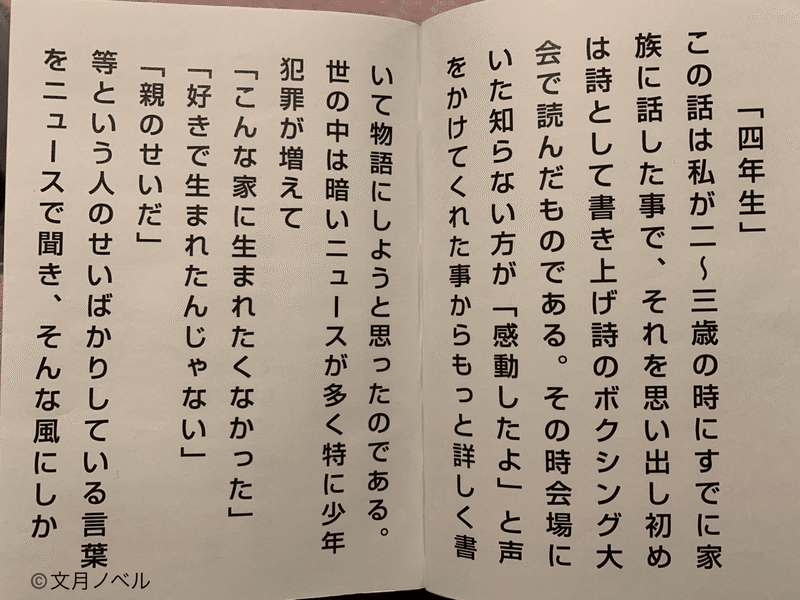 「四年生」
この話は私が二～三歳の時にすでに家
族に話した事で、それを思い出し初め
は詩として書き上げ詩のボクシング大
会で読んだものである。その時会場に
いた知らない方が「感動したよ」と声
をかけてくれた事からもっと詳しく書
いて物語にしようと思ったのである。
世の中は暗いニュースが多く特に少年
犯罪が増えて
「こんな家に生まれたくなかった」
「好きで生まれたんじゃない」
「親のせいだ」
等という人のせいばかりしている言葉
をニュースで聞き、そんな風にしか
©文月ノベル